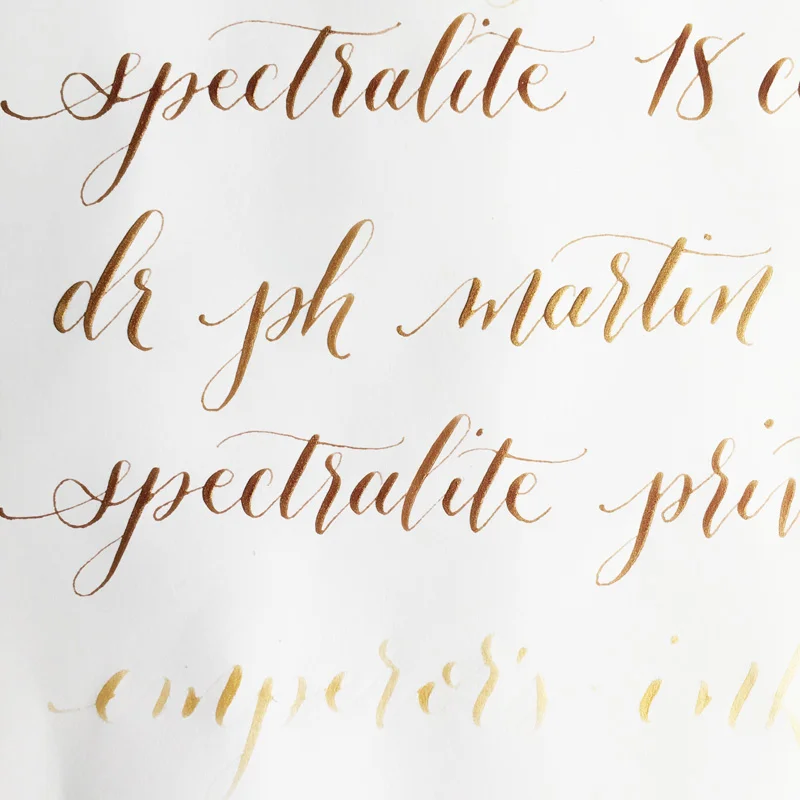 spectralite 18 c
dr ph martin
spectralite pri
emperor's ink